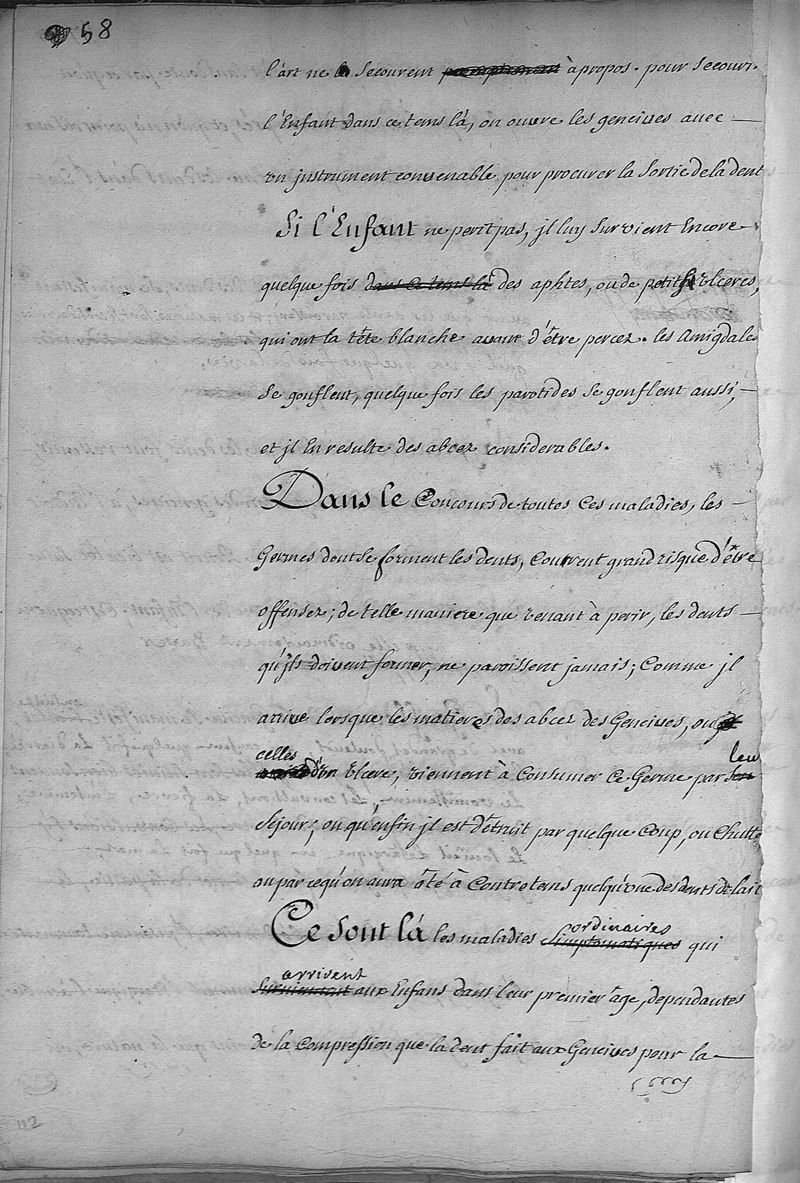 58
l'art ne le secourent à propos. pour secouri-
l'Enfant dans ce tems là, on ouvre les gencives avec
un jnstrument convenable pour procurer la sortie de la dent
Si l'Enfant ne perit pas, jl luy survient Encore
quelque fois dans ce tems là des aphtes, ou de petits Ulceres,
qui ont la tête blanche avant d'être percez. les Amigdales
se gonflent, quelque fois les parotides se gonflent aussi,
et jl En resulte des abcez considerables.
Dans le Concours de toutes Ces maladies, les
Germes dont se forment les dents, Courrent grand risque d'être
offensez; de telle maniere que venant à perir, les dents
qu'jls doivent former, ne paroissent jamais; Comme jl
arrive lorsque les matieres des abcez des Gencives, ou
celles
d'un Ulcere, viennent à Consumer Ce Germe par son
leur
sejour; ou qu'enfin jl est détruit par quelque Coup, ou Chutte
ou parcequ'on aura ôté à Contretems quelqu'une des dents de lait
Ce sont là les maladies simptomatiques qui
ordinaires
arrivent
surviennent aux Enfans dans leur premier âge, dependantes
de la Compression que la dent fait aux Gencives pour la
112